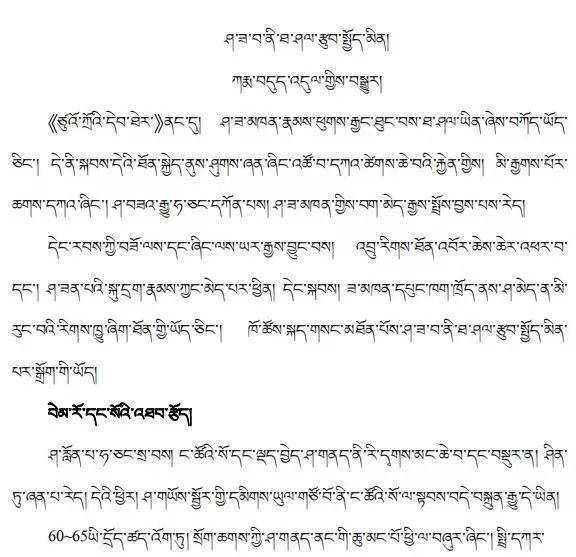 ཤ་ཟ་བ་ནི་ཐ་ཤལ་རྩུབ་སྤྱོད་མིན།
ཀརྨ་བདུད་འདུལ་གྱིས་བསྒྱུར།
《ཙུའོ་ཀྲོའི་དེབ་ཐེར་》ནང་དུ། ཤ་ཟ་མཁན་རྣམས་ཕུགས་རྒྱང་ཐུང་བས་ཐ་ཤལ་ཡིན་ཞེས་བཀོད་ཡོད་
ཅིང་། དེ་ནི་སྐབས་དེའི་ཐོན་སྐྱེད་ནུས་ཤུགས་ཞན་ཞིང་འཚོ་བ་དཀའ་ཚེགས་ཆེ་བའི་རྐྱེན་གྱིས། མི་རྒྱགས་པོར་
ཆགས་དཀའ་ཞིང་། ཤ་བཟའ་རྒྱུ་ཧ་ཅང་དཀོན་པས། ཤ་ཟ་མཁན་གྱིས་བག་མེད་རྒྱས་སྤྲོས་བྱས་པས་རེད།
དེང་རབས་ཀྱི་བཟོ་ལས་དང་ཞིང་ལས་ཡར་རྒྱས་བྱུང་བས། འབྲུ་རིགས་ཐོན་འབོར་ཆེས་ཆེར་འཕར་བ་
དང་། ཤ་ཟན་པའི་སྐུ་དྲག་རྣམས་ཀྱང་མེད་པར་ཕྱིན། དེང་སྐབས། ཟ་མཁན་དཔུང་ཁག་ཁྲོད་ནས་ཤ་མེད་ན་མི་
རུང་བའི་རིགས་ཁྱུ་ཞིག་ཐོན་གྱི་ཡོད་ཅིང་། ཁོ་ཚོས་སྐད་གསང་མཐོན་པོས་ཤ་ཟ་བ་ནི་ཐ་ཤལ་རྩུབ་སྤྱོད་མིན་
པར་སྒྲོག་གི་ཡོད།
བེམ་རོ་དང་སོའི་འཐབ་རྩོད།
ཤ་རློན་པ་ཧ་ཅང་སྲ་བས། ང་ཚོའི་སོ་དང་ལྡད་བྱེད་ཤ་གནད་ནི་རི་དྭགས་མང་ཆེ་བ་དང་བསྡུར་ན། ཤིན་
ཏུ་ཞན་པ་རེད། དེའི་ཕྱིར། ཤ་གཡོས་སྦྱོར་གྱི་དམིགས་ཡུལ་གཙོ་བོ་ནི་ང་ཚོའི་སོ་ལ་སྟབས་བདེ་བསྐྲུན་རྒྱུ་དེ་ཡིན།
60~65ཡི་དྲོད་ཚད་འོག་ཏུ། སྲོག་ཆགས་ཀྱི་ཤ་གནད་ནང་གི་ཆུ་མང་པོ་ཕྱི་ལ་བཞུར་ཞིང་། སྤྲི་དཀར་